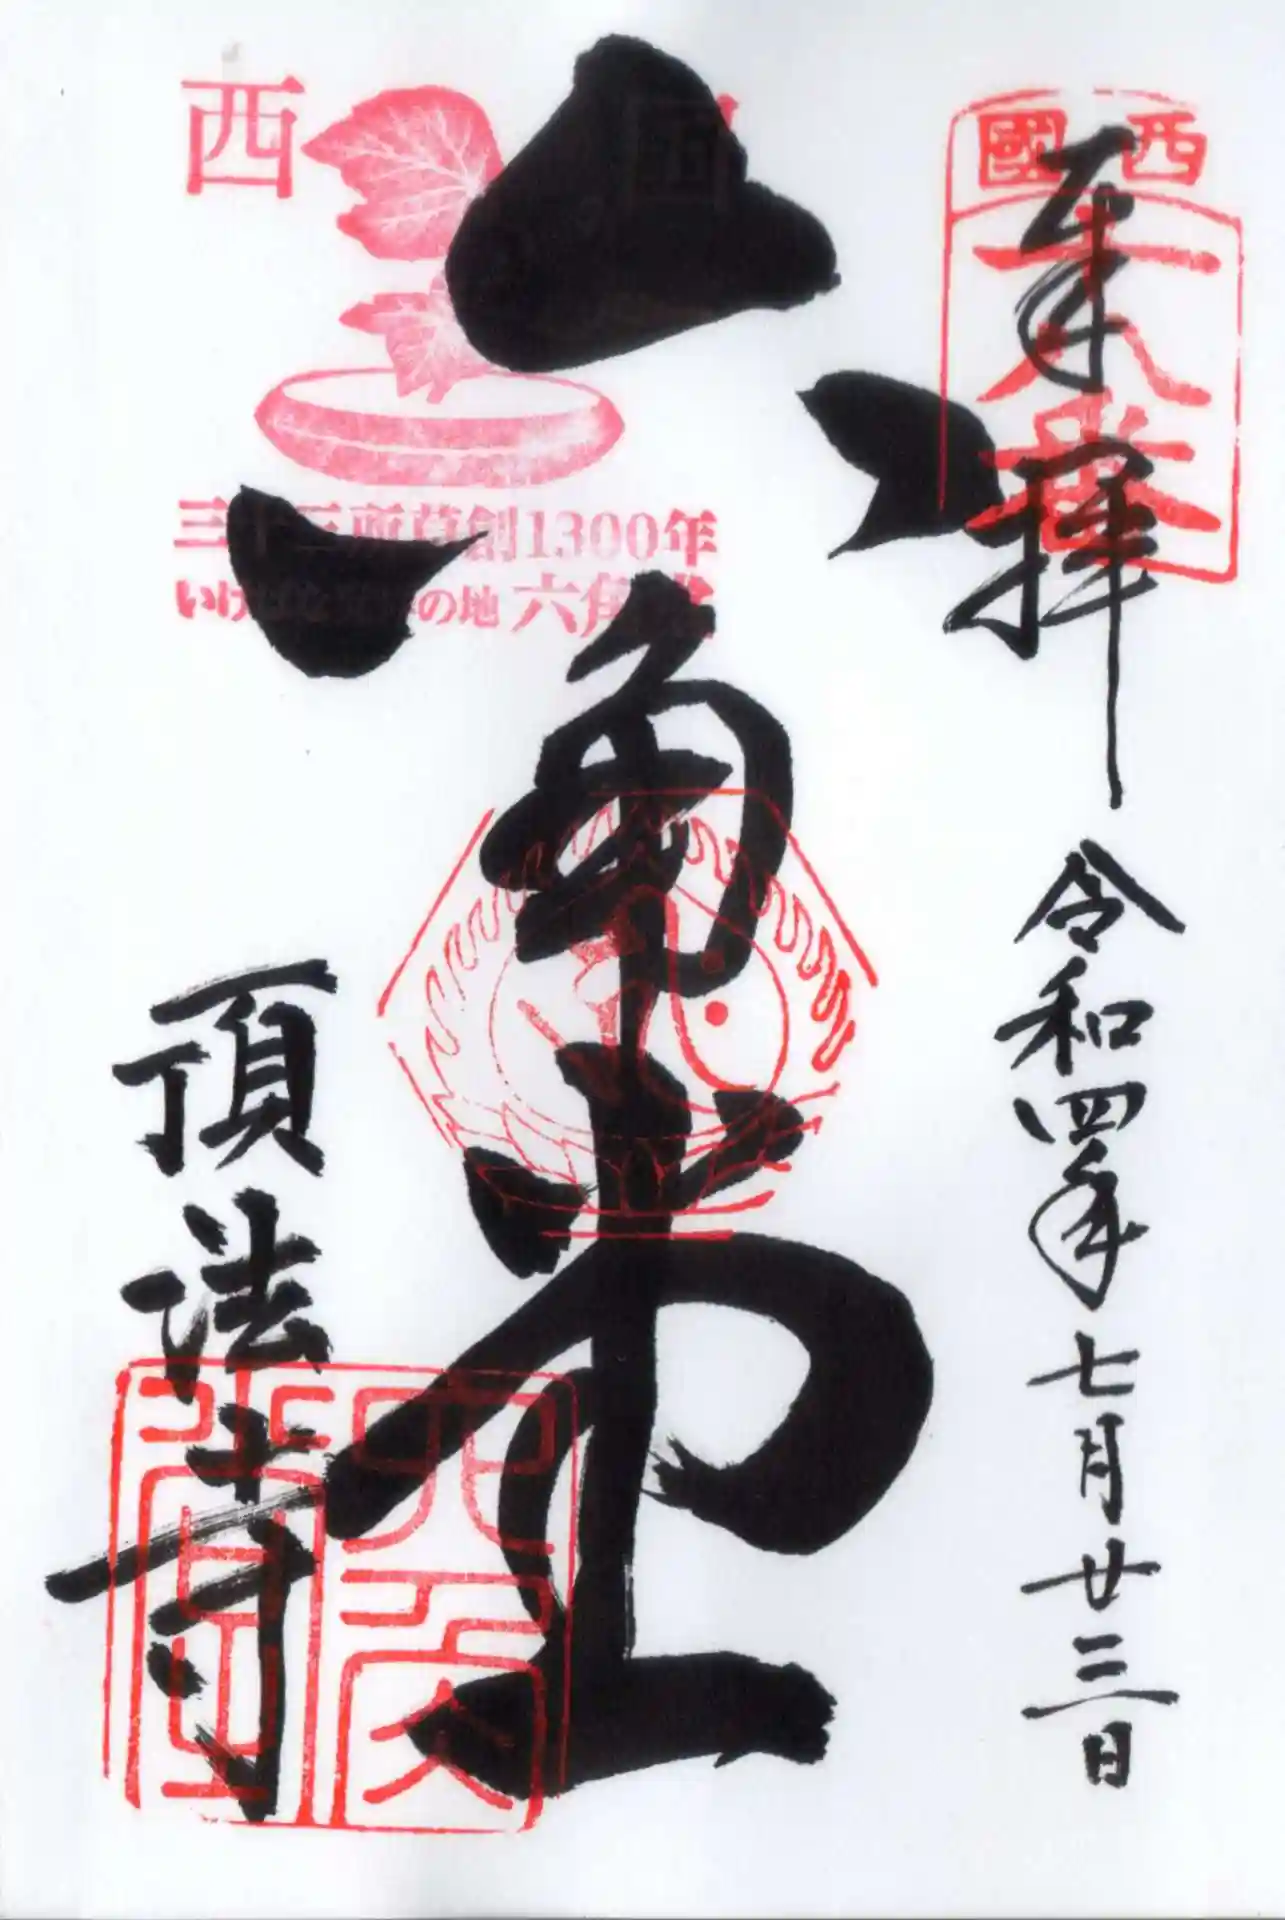 奉拝
令和四年七月廿三日
西國
十八番
六角堂
西国
三十三所草創1300年
いけばな発祥の地 六角堂
頂法寺
六角堂印